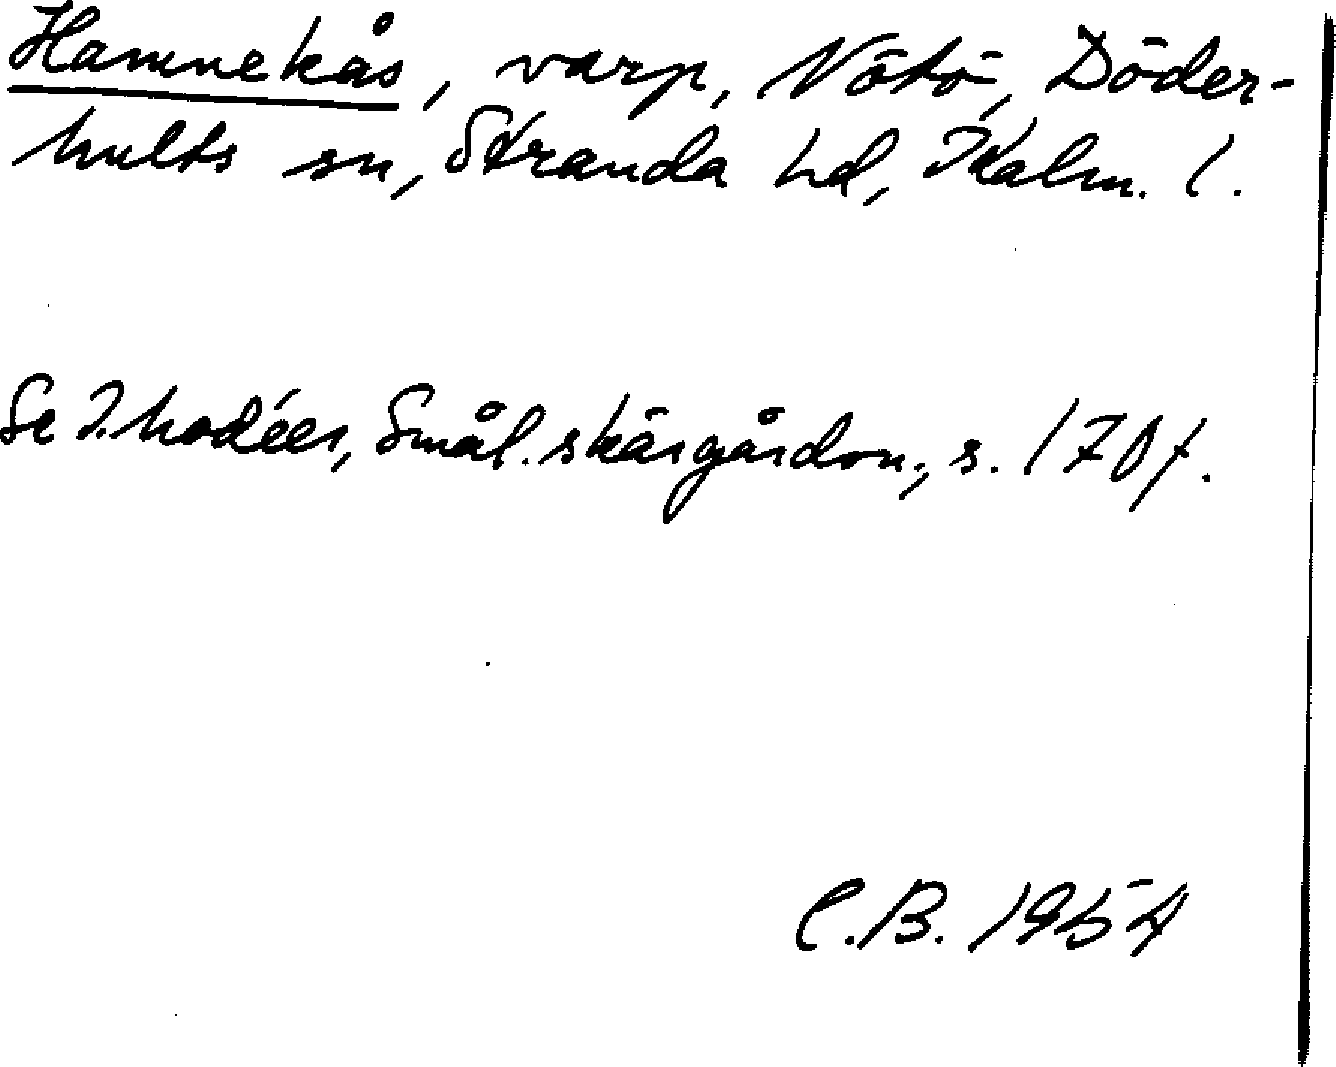 Hamnekås, varp, Vötö, Döder-
hults sn, Stranda hd, Kalm. l.
Se I. Modéer, Smål. skärgårdsn., s. 170 f.
C.B. 1954